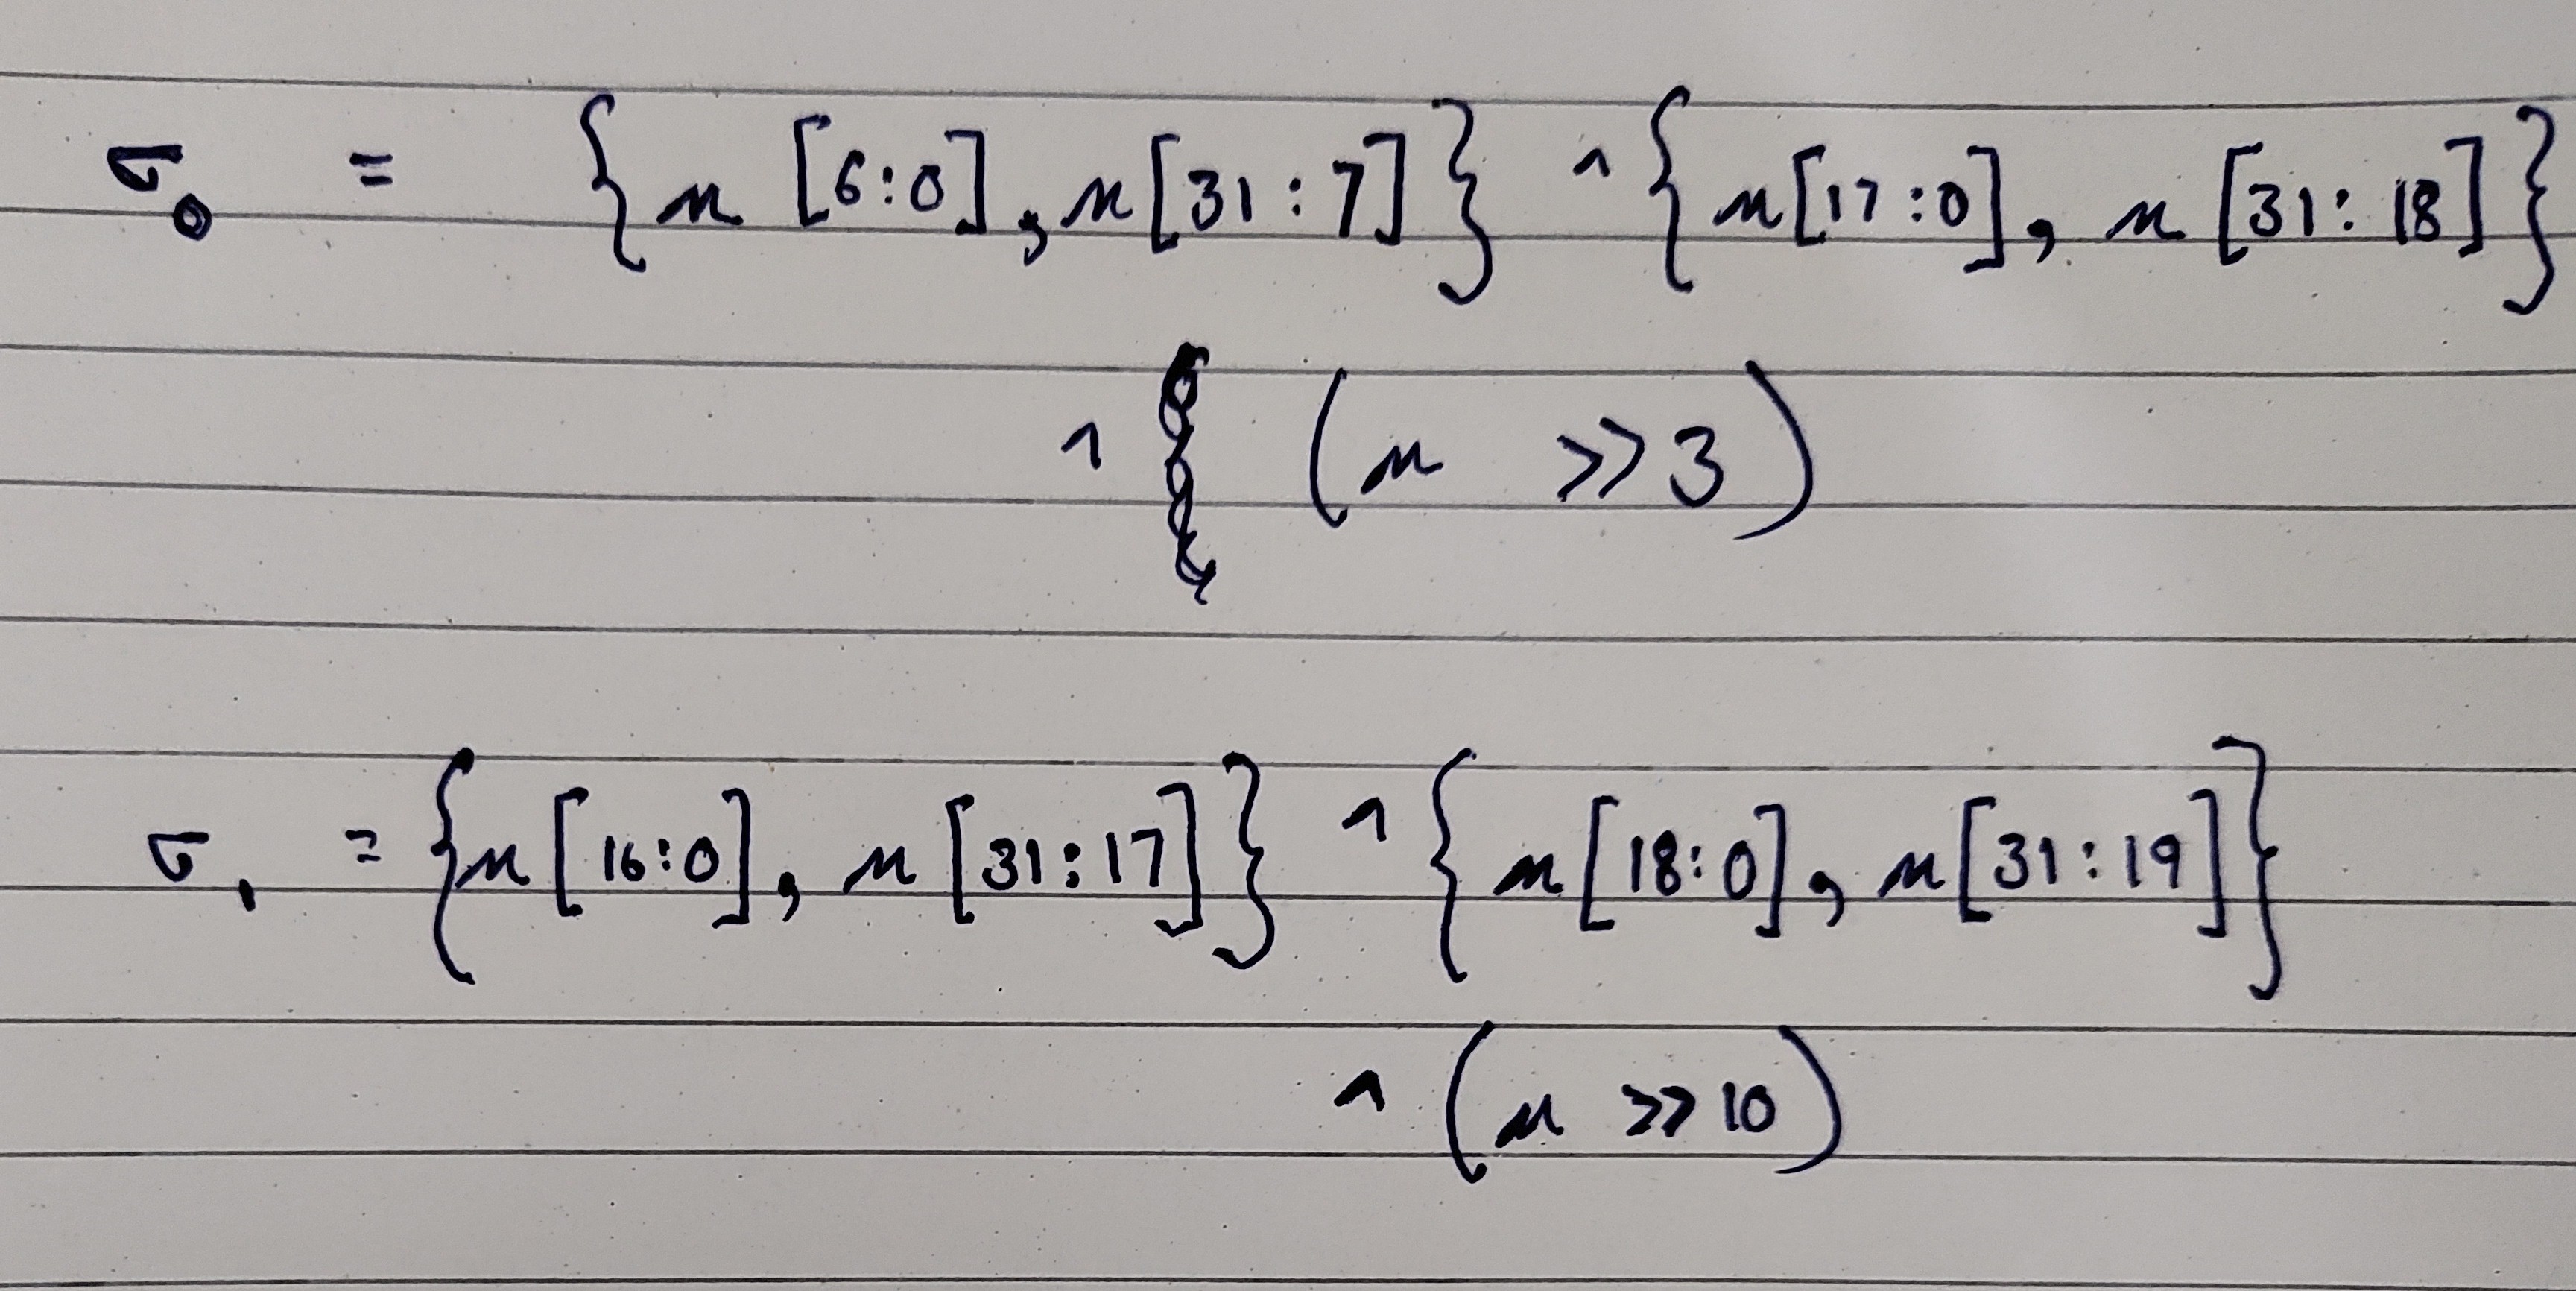 σ₀ = {x [6:0], x[31:7]} ^ {x[17:0], x [31:18]}
^ (x >>3)
σ₁ = {x[16:0], x[31:17]} ^ {x[18:0], x[31:19]}
^ (x >>10)